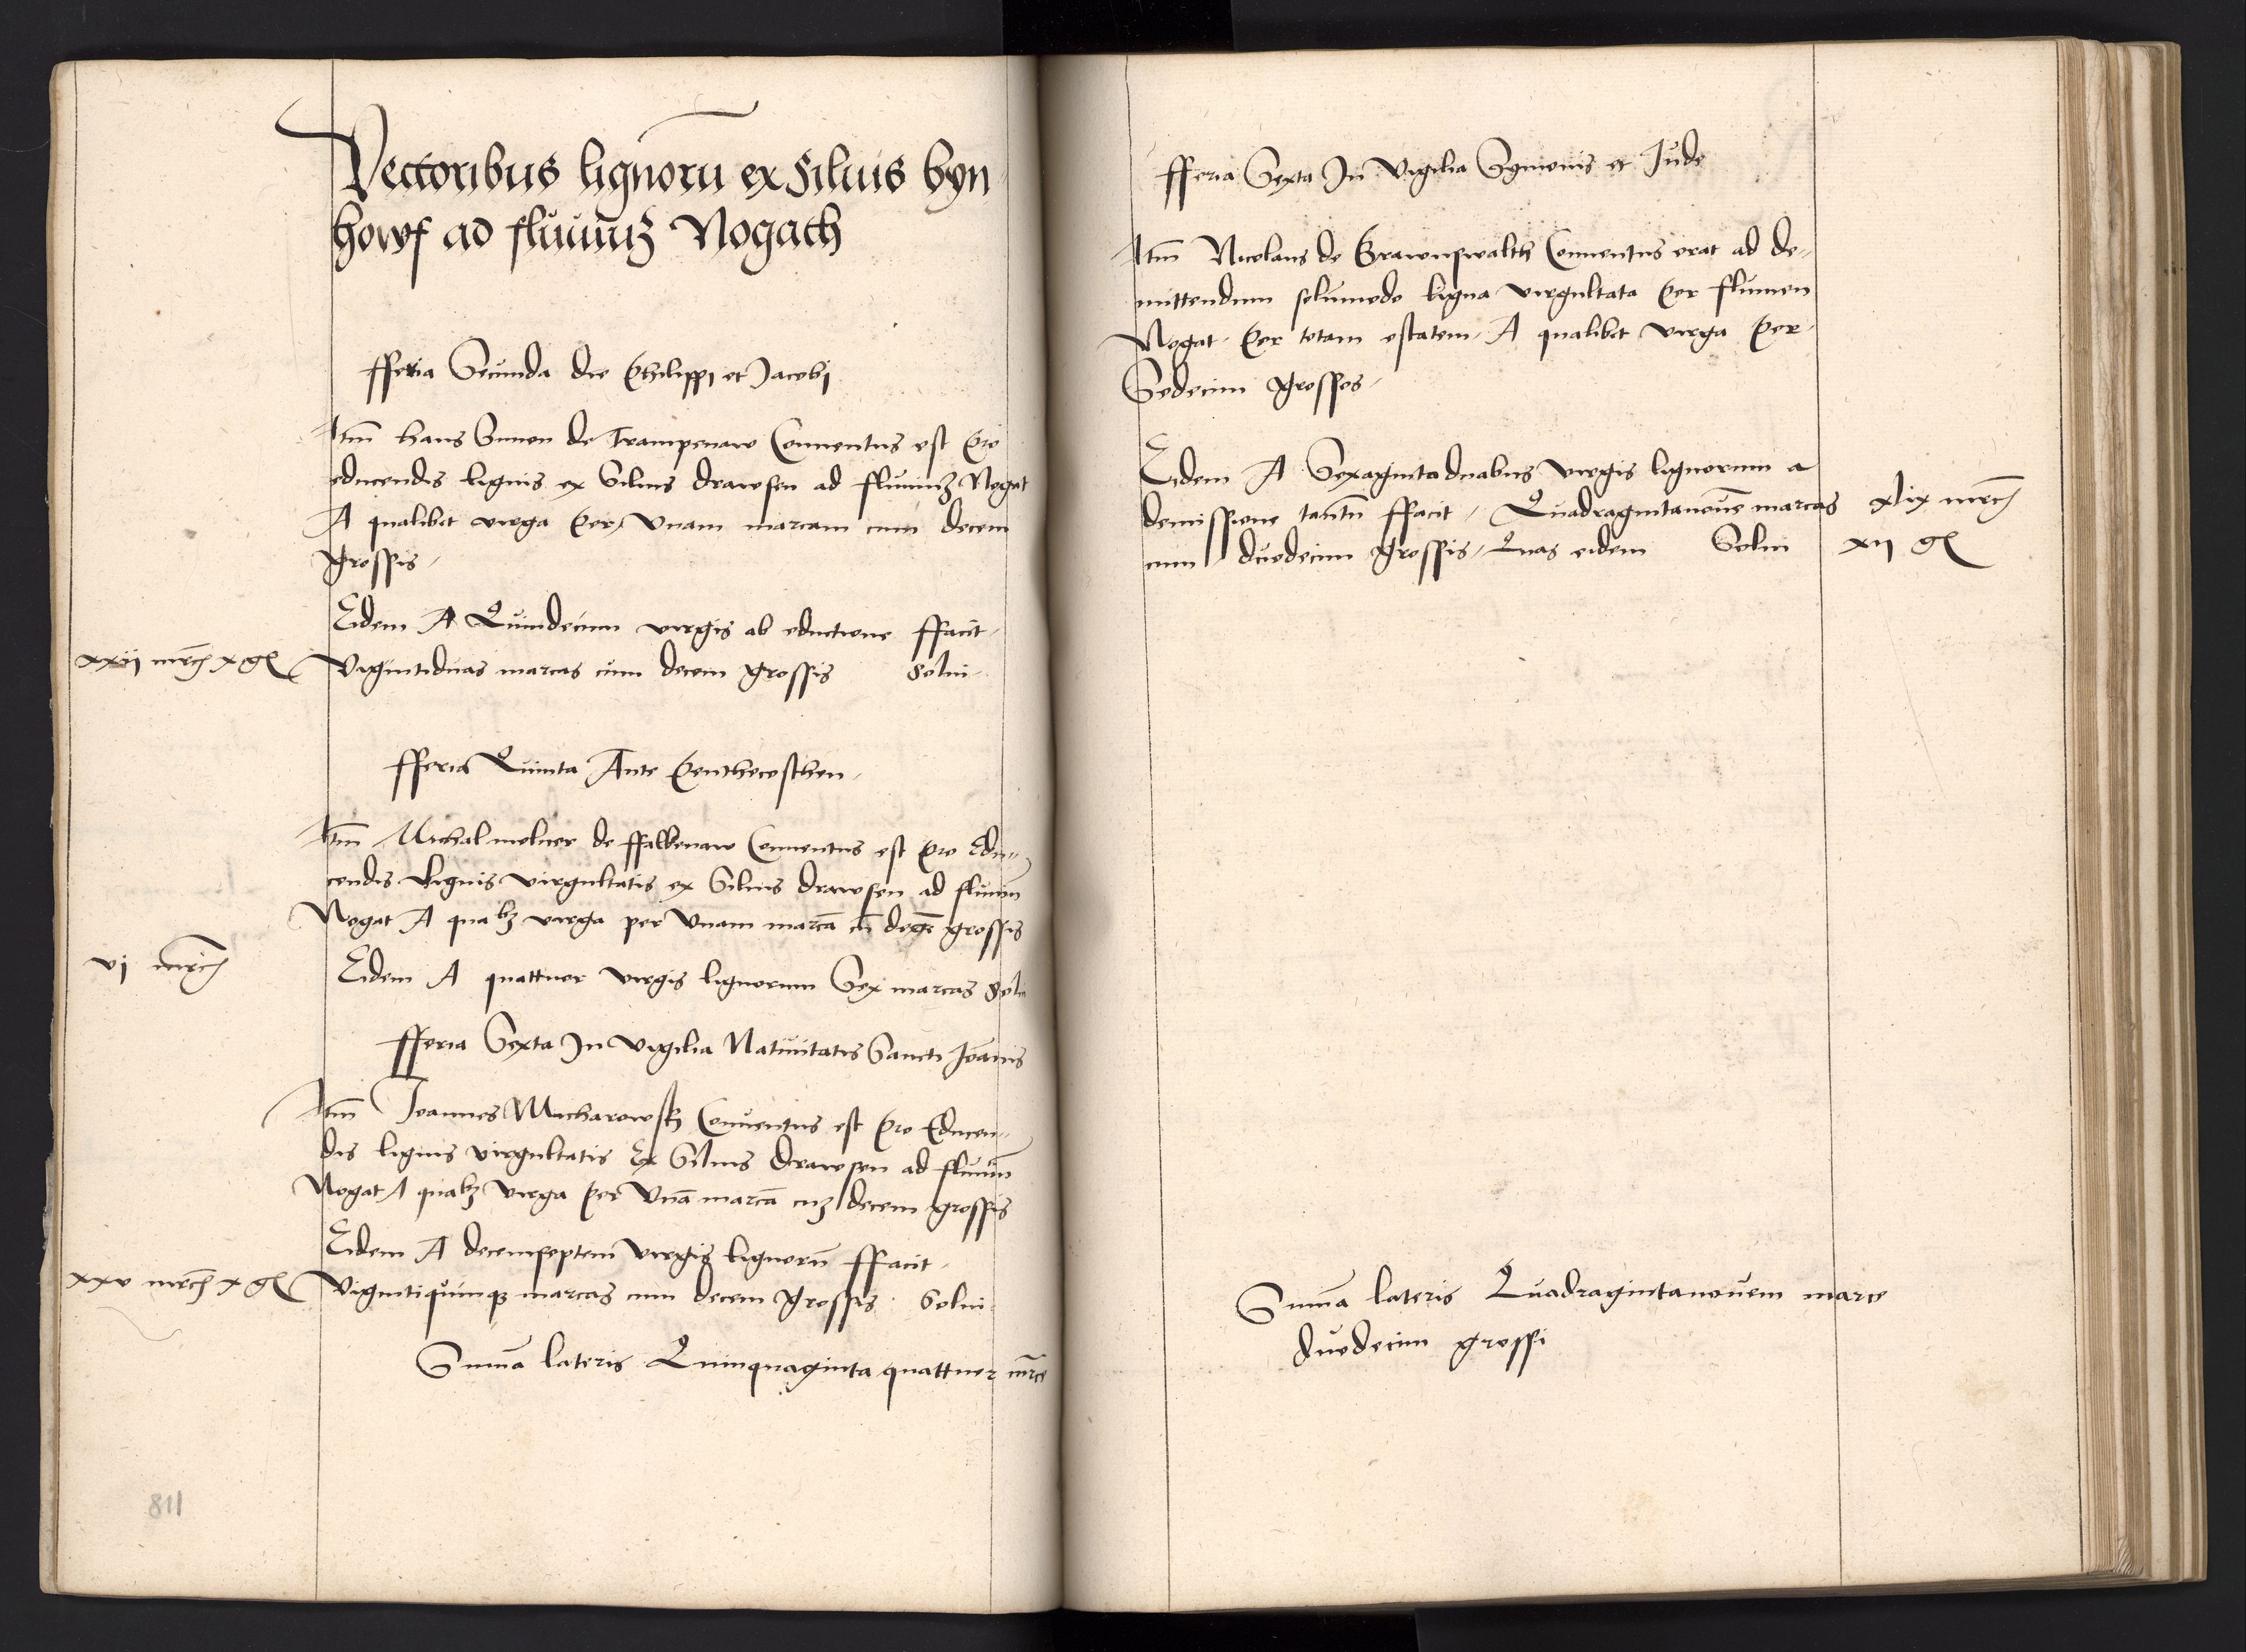 Vectoribus lignorū ex siluis byn
howf ad fluuiuʒ Nogath
fferia Secunda die Philippi et Jacobi
Itm̄ hans Simon de Trampenaw Conuentus est pro
educendis lignis ex Siluis drawsen ad fluuiuʒ Nogat
A qualibet virga per vnam marcam cum decem
grossis
Eidem A Quindecim virgis ab eductione ffacit
xxij mrc̄ x gͦ Vigintiduas marcas cum decem grossis Solui
fferia Quinta Ante Penthecosthen
Itm̄ Michal molner de ffalkenaw Conuentus est pro Edu-
cendis lignis virgultatis ex Siluis drawsen ad fluuiū
Nogat A qualꝫ virga per vnam marcā cū decē grossis
vj mrc̄ Eidem A quattuor virgis lignorum Sex marcas Solui
fferia Sexta In vigilia Natiuitatis Sancti Joānis
Itm̄ Joannes Mucharowskj Conuentus est pro Educen-
dis lignis virgultatis Ex Siluis drawsen ad fluuiū
Nogat A qualꝫ virga per vnā marcā cuʒ decem grossis
Eidem A decemseptem virgis lignorū ffacit
xxv mrc̄ x gͦ Vigintiquinqꝫ marcas cum decem grossis Solui
Sum̄a lateris Quinquaginta quattuor mr̄ce
811
fferia Sexta In vigilia Symonis et Jude
Itm̄ Nicolaus de Brawnswalth Conuentus erat ad de-
mittendum solumodo ligna virgultata per flumen
Nogat per totam estatem A qualibet virga per
Sedecim grossos
Eidem A Sexagintaduabus virgis lignorum a
demissione tantū ffacit Quadragintanouē marcas xlix mrc̄
cum duodecim grossis Quas eidem Solui xij gͦ
Sum̄a lateris Quadragintanouem marce
duodecim grossi